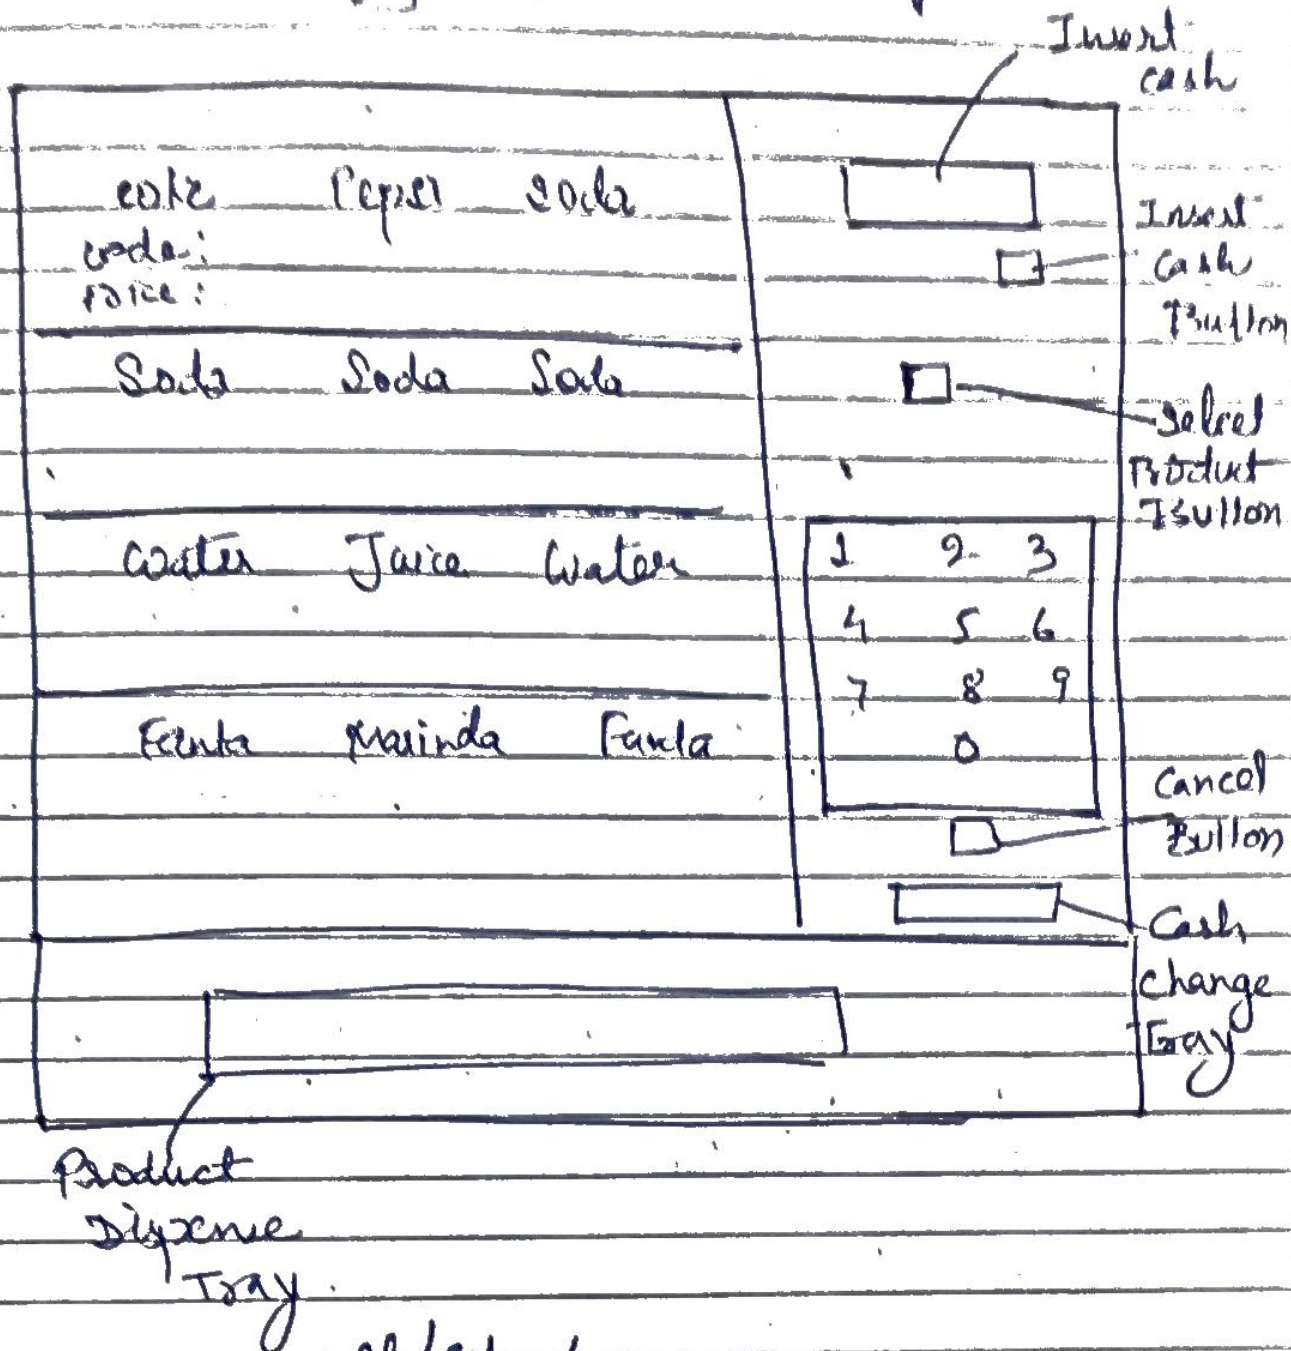 Insert
cash
Coke Pepsi Soda
code:
price:
Insert
Cash
Button
Soda Soda Soda
Select
Product
Button
Water Juice Water
1 2 3
4 5 6
7 8 9
0
Fanta Marinda Fanta
Cancel
Button
Cash
change
Tray
Product
Dispense
Tray